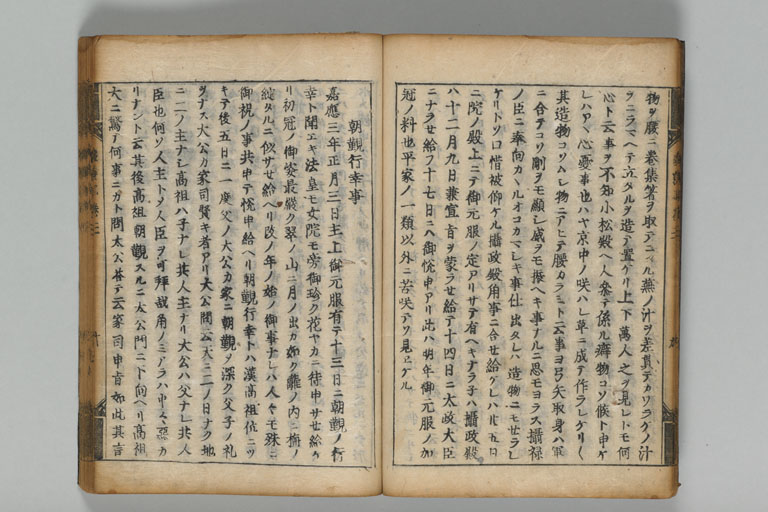 物ヲ腰ニ巻集箸ヲ取テニクル蕪ノ汁ヲ差貫テカワラケノ汁
ヲニラマヘテ立タルヲ造テ置ケリ上下萬人之ヲ見レトモ何
心ト云事ヲ不知小松殿ヘ人参テ係ル癖物コソ候ト申ケ
レハアヽ心憂事也ハヤ京中ノ咲ハレ草ニ成テ作ラレケリ〱
其造物コソムシ物ニアヒテ腰カラミト云事ヨ弓矢取身ハ軍
ニ合テコソ剛ヲモ顕シ威ヲモ振ヘキ事ナルニ思モヨラス攝禄
ノ臣ニ奉向カヽルオコカマシキ事仕出タレハ造物ニモセラレ
ケリトソ口惜被仰ケル攝政殿角事ニ合セ給ケレハ廿五日
ニ院ノ殿上ニテ御元服ノ定アリサテ有ヘキナラ子ハ攝政殿
ハ十二月九日兼宣旨ヲ蒙ラセ給テ十四日ニ太政大臣
ニナラセ給フ十七日ニハ御悦申アリ此ハ明年御元服ノ加
冠ノ料也平家ノ一類以外ニ苦咲テソ見ヘケル
朝觀行幸事
嘉應三年正月三日主上御元服有テ十三日ニ朝觀ノ行
幸ト聞エキ法皇モ女院モ旁御珍ク花ヤカニ待申サセ給ケ
リ初冠ノ御姿最嚴ク翠ノ山ニ月ノ出カ如ク籬ノ内ニ梅ノ
綻タルニ似サセ給ヘリ改ノ年ノ始ノ御事ナレハ人々モ殊ニ
御祝ノ事共申テ悦申給ヘリ朝觀行幸トハ漢高祖位ニツ
キテ後五日ニ一度父ノ大公カ家ニ朝觀ヲ深ク父子ノ礼
ヲナス大公カ家司賢キ者アリ大公ニ問云天ニ二ノ日ナク地
ニ二ノ主ナシ高祖ハ子ナレ共人主ナリ大公ハ父ナレ共人
臣也何ソ人主トソ人臣ヲ可拜哉角ノミアラハ申々惡カ
リナント云其後高祖朝觀スルニ大公門ニ下向ヘリ高祖
大ニ驚テ何事ニカト問太公答テ云家司申旨如此其言